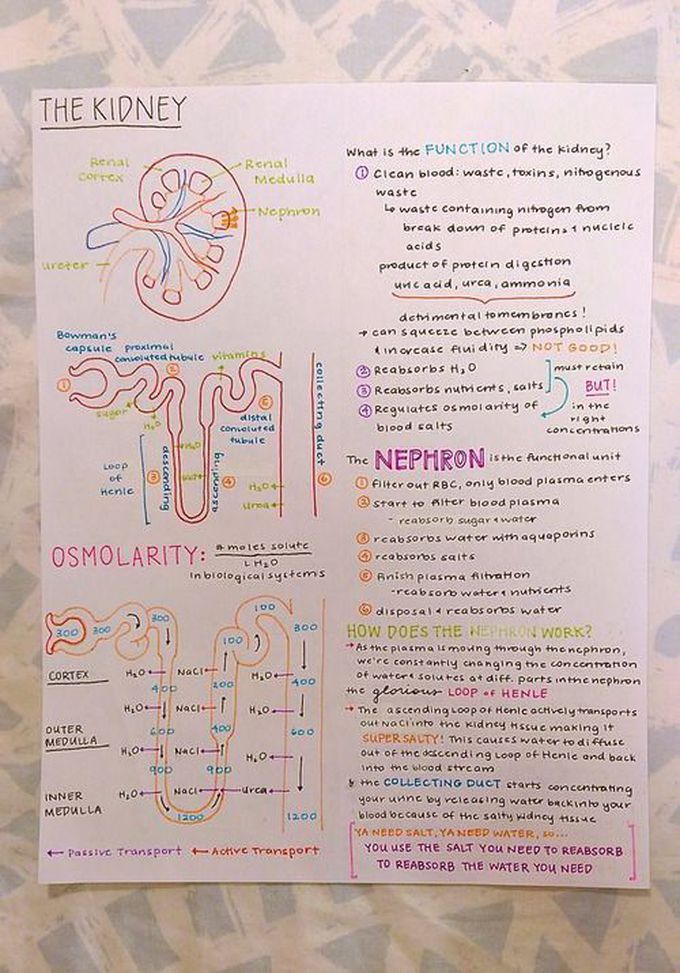 THE KIDNEY
Renal
Cortex
Renal
Medulla
Nephron
ureter
Bowman's
capsule
proximal
convoluted tubule
vitamins
①
②
sugar
H₂O
⑤
distal
convoluted
tubule
collecting duct
Loop
of
Henle
③
descending
H₂O
salt
ascending
④
H₂O
Urea
⑥
OSMOLARITY: # moles solute
L H₂O
in biological systems
300
300
300
100
100
300
CORTEX
H₂O
NaCl
H₂O
400
200
400
H₂O
NaCl
H₂O
OUTER
MEDULLA
600
400
600
H₂O
NaCl
H₂O
900
900
INNER
MEDULLA
H₂O
NaCl
Urea
1200
1200
← Passive Transport ← Active Transport
What is the FUNCTION of the kidney?
① Clean blood: waste, toxins, nitrogenous
waste
↳ waste containing nitrogen from
break down of proteins & nucleic
acids
product of protein digestion
uric acid, urea, ammonia
detrimental to membranes!
→ can squeeze between phospholipids
& increase fluidity => NOT GOOD!
② Reabsorbs H₂O
③ Reabsorbs nutrients, salts
④ Regulates osmolarity of
blood salts
must retain
BUT!
in the
right
concentrations
The NEPHRON is the functional unit
① filter out RBC, only blood plasma enters
② start to filter blood plasma
- reabsorb sugar & water
③ reabsorbs water with aquaporins
④ reabsorbs salts
⑤ finish plasma filtration
- reabsorb water & nutrients
⑥ disposal & reabsorbs water
HOW DOES THE NEPHRON WORK?
→ As the plasma is moving through the nephron,
we're constantly changing the concentration
of water & solutes at diff. parts in the nephron
the glorious LOOP of HENLE
→ The ascending loop of Henle actively transports
out NaCl into the kidney tissue making it
SUPER SALTY! This causes water to diffuse
out of the descending loop of Henle and back
into the blood stream
& the COLLECTING DUCT starts concentrating
your urine by releasing water back into your
blood because of the salty kidney tissue
YA NEED SALT, YA NEED WATER, so...
YOU USE THE SALT YOU NEED TO REABSORB
TO REABSORB THE WATER YOU NEED